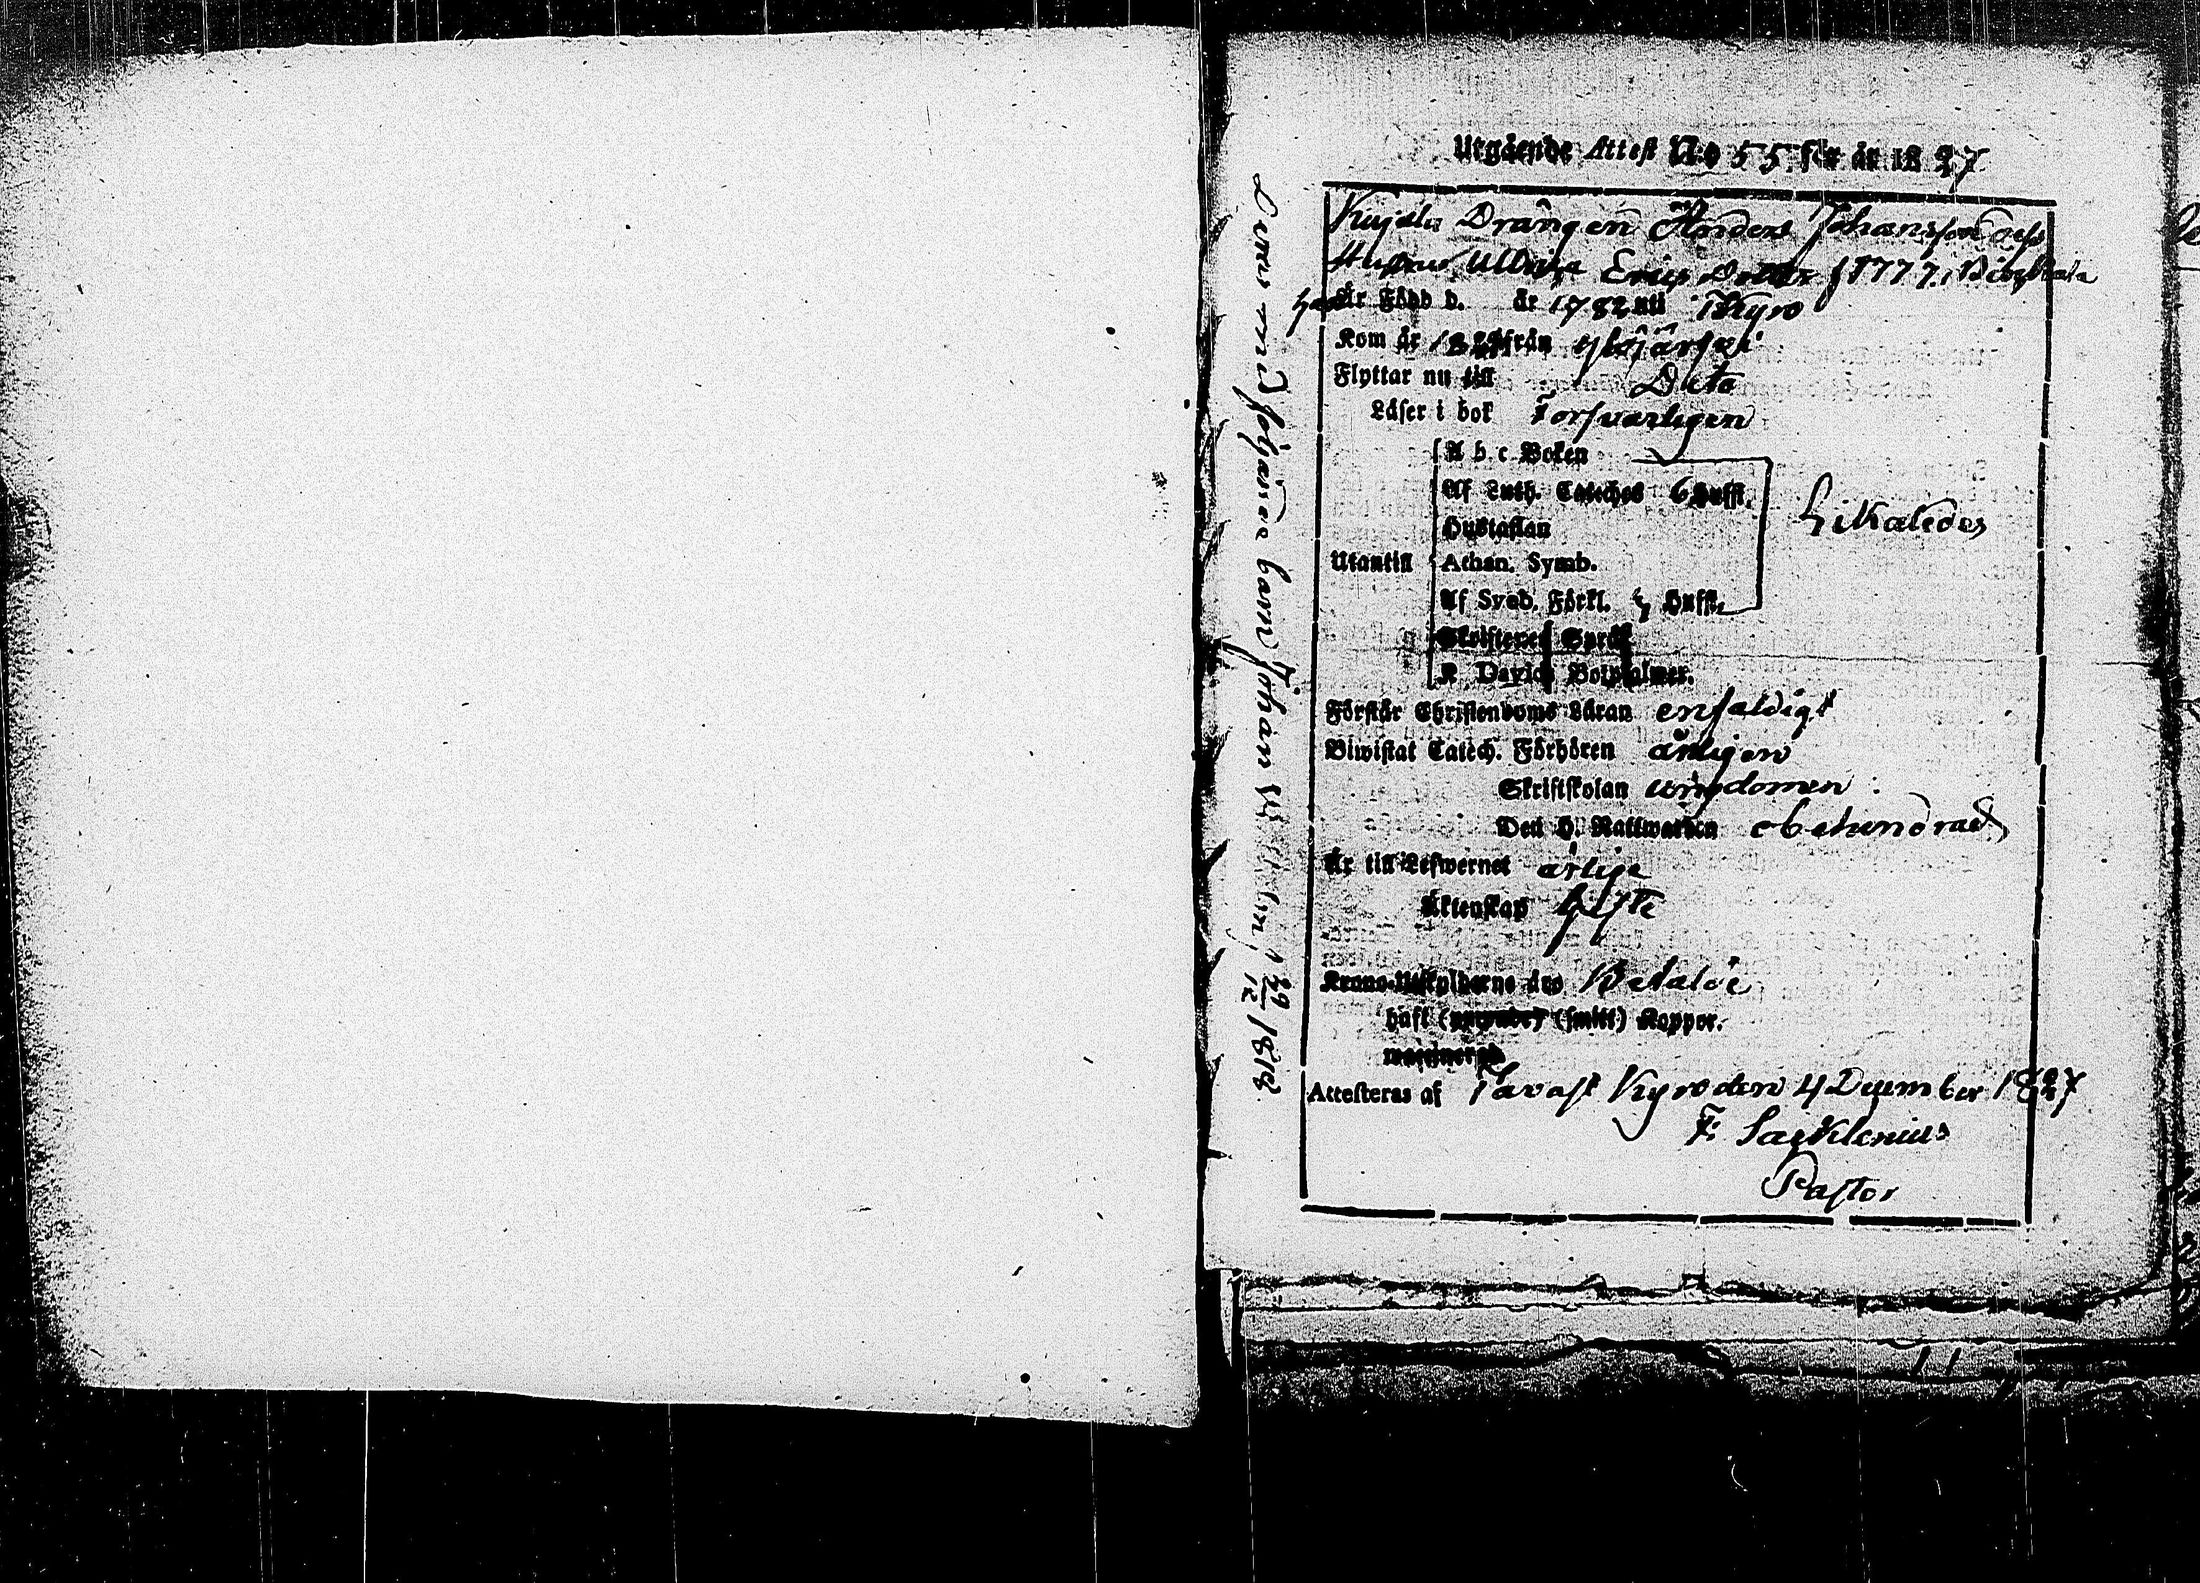 Utgående Attest N:o 55 för år 1827
Drängen Anders Johansson dess
Hustru Ullrica Erics Dotter f 1777 i Birkkala
han Är Född d. år 1782 uti Kyro
Kom år från Ylöjärfvi
Flyttar nu till Dito
Läser i bok Forsvarligen
A b c Boken
Af Luth. Cateches 6 Hufst.
Hustaflan
Likaledes
Utantill Athan. Symb.
Af Sveb. Förkl. Hufst.
Skriftenes Språk
K Davids Botpsalmer.
Förstår Christendoms Läran enfaldigt
Biwistat Catech. Förhören årligen
Skriftskolan i ungdomen
Den H. Nattwarden obehindrad
Är till Lefwernet ärliga
Äktenskap Gifte
Krono-Utskylderne äro Betalde
haft (smitt) Koppor.
Attesteras af Tavast Kyro den 4 December 1827
F:
Pastor
Deras medföljande barn Johan f 29/12 1812